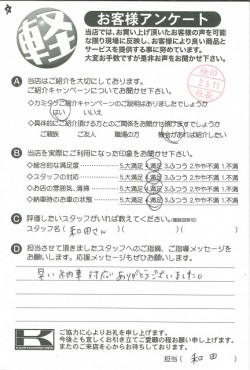 軽
お客様アンケート
当店では、お買い上げ頂いたお客様の声を可能
な限り現場に反映し、お客様により良い商品と
サービスを提供する事に努めています。
大変お手数ですが是非お声をお聞かせ下さい。
A 当店はご紹介を大切にしております。
ご紹介キャンペーンについてお聞かせ下さい。
・カミタケご紹介キャンペーンのご説明はありましたでしょうか
はい いいえ
・具体的にご紹介頂ける方とのご関係をお聞かせ頂けますでしょうか
ご親族 ご友人 職場の方 機会があれば紹介したい
B 当店を実際にご利用になった印象をお聞かせ下さい。
◇総合的な満足度 5.大満足 4.満足 3.ふつう 2.やや不満 1.不満
◇スタッフの対応 5.大満足 4.満足 3.ふつう 2.やや不満 1.不満
◇お店の雰囲気、清掃 5.大満足 4.満足 3.ふつう 2.やや不満 1.不満
◇納車時のお車の状態 5.大満足 4.満足 3.ふつう 2.やや不満 1.不満
C 評価したいスタッフがいれば教えてください。
スタッフ名( 和田さん )
D 担当させて頂きましたスタッフへのご指摘、ご指導メッセージを
お願いします。応援メッセージもぜひお願いします。
早い納車 対応 ありがとうございました。
K
ご協力に心よりお礼を申し上げます。
今後とも宜しくお引き立てご愛顧の程お願い申し上げます。
またのご来店を心からお待ちしております。
担当( 和田 )